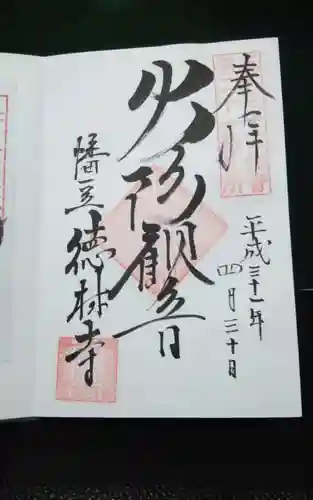 奉拝
平成三十一年
四月三十日
火防観音
幡豆
徳林寺